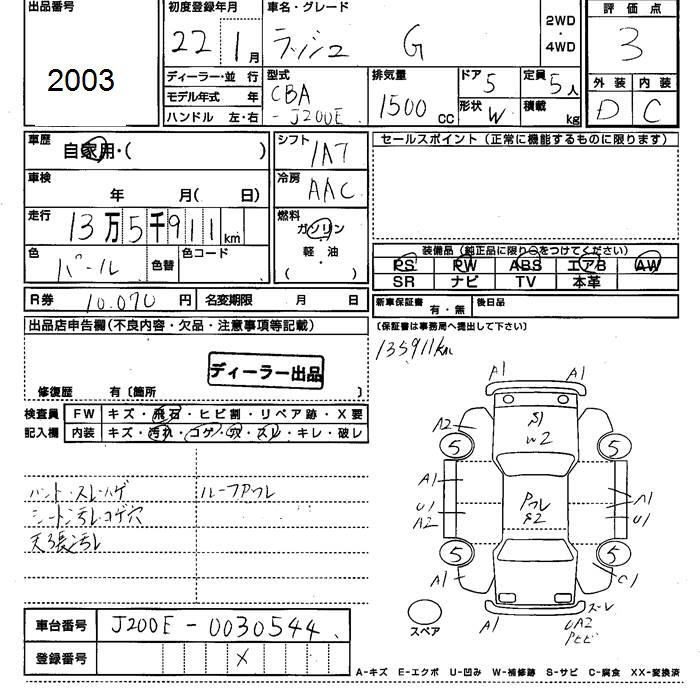 出品番号
2003
初度登録年月
22 1月
車名・グレード
ラッシュ G
2WD
・
4WD
評価点
3
ディーラー・並行
モデル年式 年
ハンドル 左・右
型式
CBA
-J200E
排気量
1500 CC
ドア 5
形状 W
定員 5人
積載 kg
外装 内装
D C
車歴
自家用・( )
シフト
IAT
セールスポイント (正常に機能するものに限ります)
車検
年 月(日)
冷房
AAC
走行
13万5千911km
燃料
ガソリン
軽・油
( )
色
パール
色替
色コード
装備品 (純正品に限り○をつけてください)
PS PW ABS エアB AW
SR ナビ TV 本革
R券 10,070円
名変期限 月 日
新車保証書
有・無
後日品
(保証書は事務局へ提出して下さい)
出品店申告欄(不良内容・欠品・注意事項等記載)
ディーラー出品
修復歴 有〔箇所 〕
135911km
検査員
記入欄
FW キズ・飛石・ヒビ割・リペア跡・X要
内装 キズ・汚れ・コゲ・穴・スレ・キレ・破レ
ハンドル・スレ・ハゲ
ルーフアフレ
シート汚レ・コゲ穴
天張汚レ
A1 A1
A2
S1
W2
5 5
A1
U1
A2
Pフレ
S2
A1
U1
5 5
A1
スペア
A1
スレ
UA2
Pヒビ
車台番号 J200E-0030544
登録番号 X
A-キズ E-エクボ U-凹み W-補修跡 S-サビ C-腐食 XX-変換済